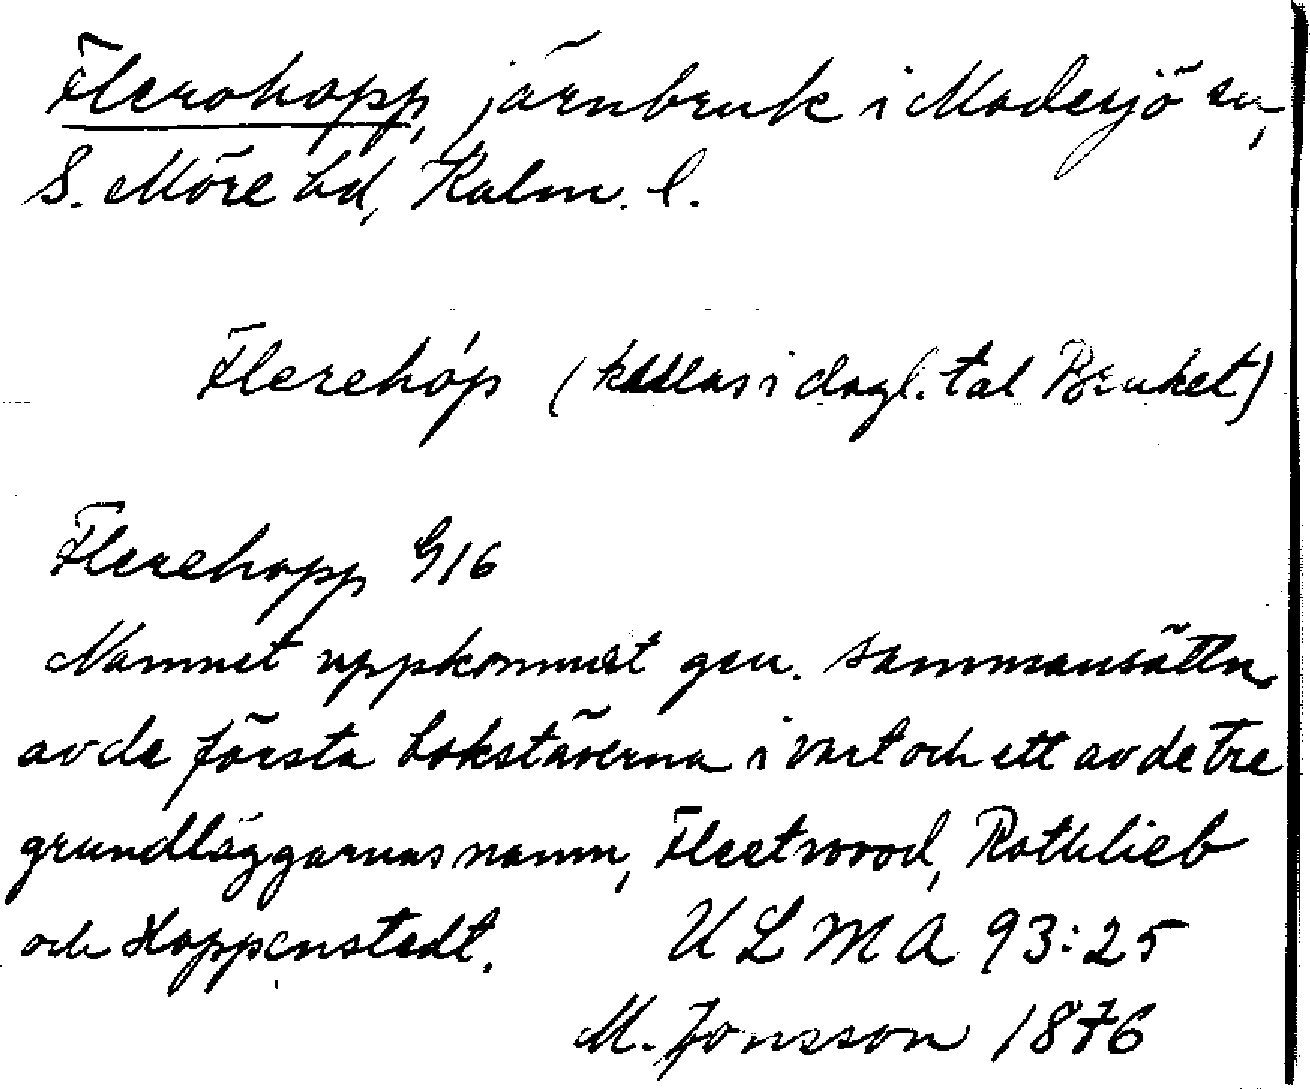 Flerohopp, järnbruk i Madesjö sn,
S. Möre hd, Kalm. l.
Flerehóp (kallas i dagl. tal Bruket)
Flerehopp G16
Namnet uppkommet gen. sammansättn.
av de första bokstäverna i vart och ett av de tre
grundläggarnas namn, Fleetwood, Rothlieb
och Hoppenstedt. ULMA 93:25
M. Jonsson 1876